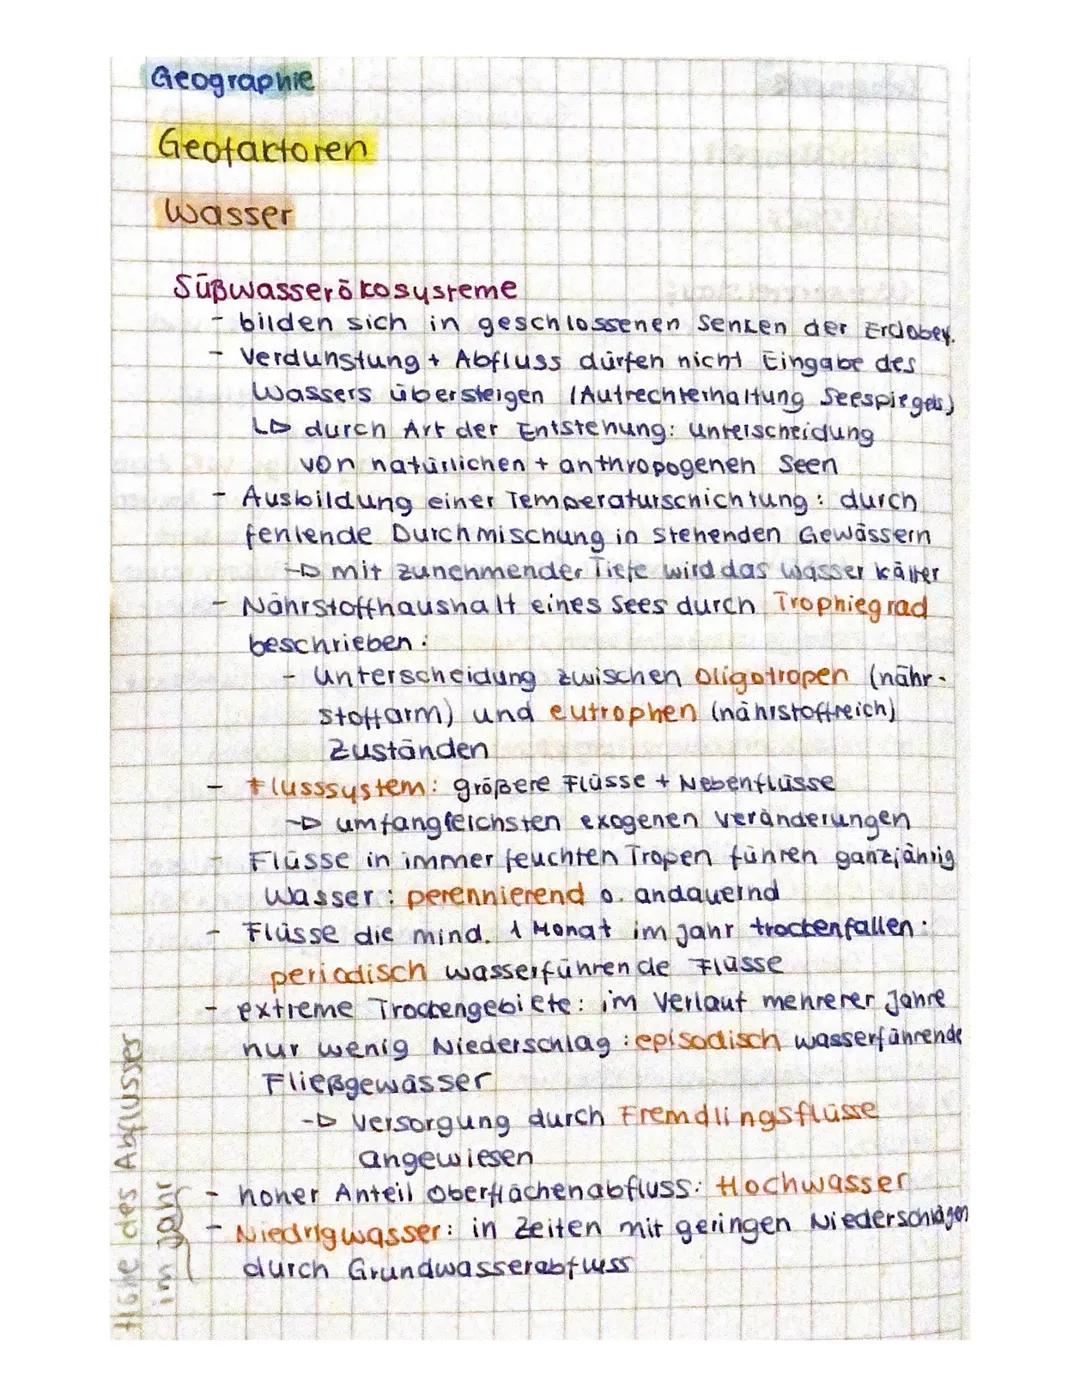 Geographie
Geofaktoren
Wasser
Süßwasserökosysteme
- bilden sich in geschlossenen Senken der Erdober.
- Verdunstung + Abfluss dürfen nicht Eingabe des
Wassers übersteigen (Aufrechterhaltung Seespiegels)
↳ durch Art der Entstehung: Unterscheidung
von natürlichen + anthropogenen Seen
- Ausbildung einer Temperaturschichtung: durch
fehlende Durchmischung in stehenden Gewässern
→ mit zunehmender Tiefe wird das Wasser kälter
- Nährstoffhaushalt eines Sees durch Trophiegrad
beschrieben:
- Unterscheidung zwischen oligotropen (nähr-
stoffarm) und eutrophen (nährstoffreich)
Zuständen
- Flusssystem: größere Flüsse + Nebenflüsse
→ umfangreichsten exogenen Veränderungen
- Flüsse in immer feuchten Tropen führen ganzjährig
Wasser: perennierend o. andauernd
- Flüsse die mind. 1 Monat im Jahr trockenfallen:
periodisch wasserführende Flüsse
- extreme Trockengebiete: im Verlauf mehrerer Jahre
nur wenig Niederschlag: episodisch wasserführende
Fließgewässer
→ Versorgung durch Fremdlingsflüsse
angewiesen
- hoher Anteil Oberflächenabfluss: Hochwasser
- Niedrigwasser: in Zeiten mit geringen Niederschlägen
durch Grundwasserabfluss
Höhe des Abflusses
im Jahr